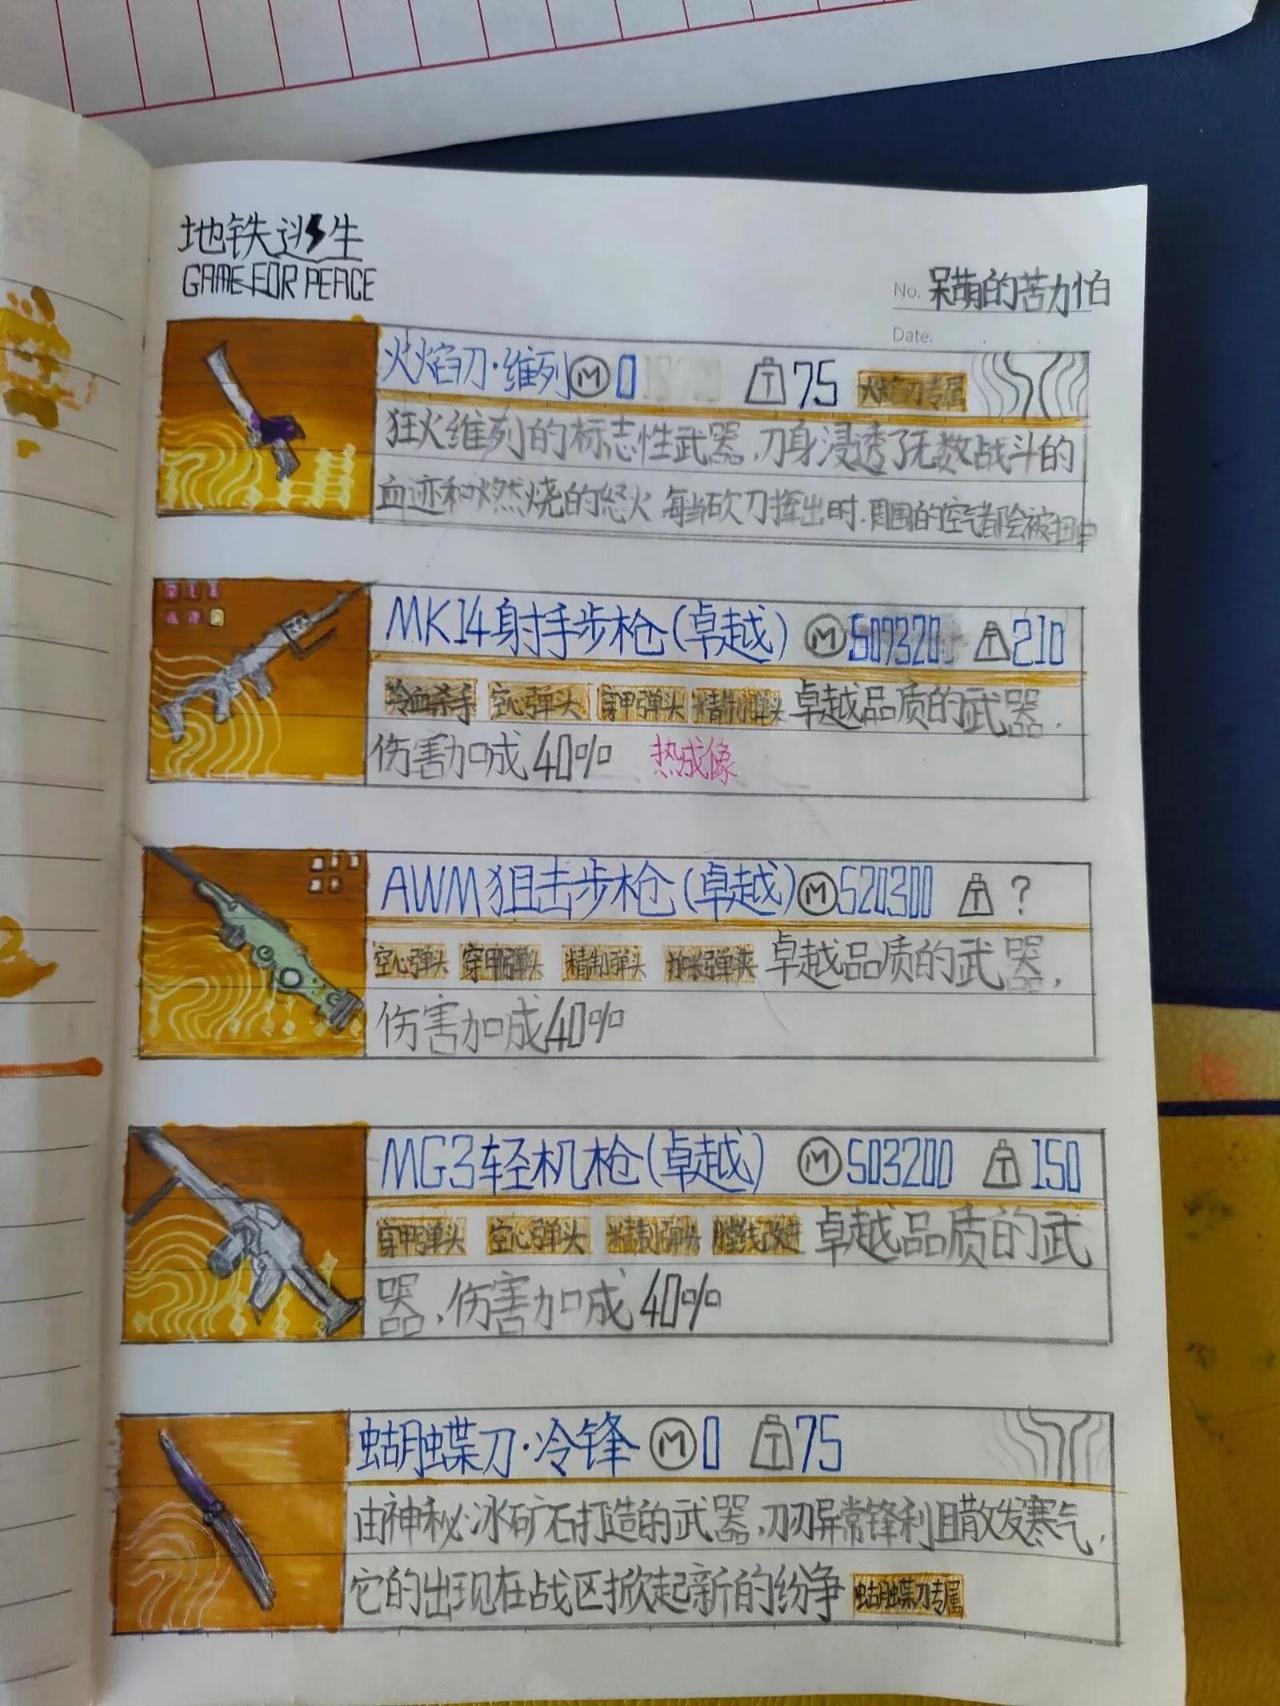 地铁逃生
GAME FOR PEACE
No. 呆萌的苦力怕
Date.
火焰刀·维列 M 0 T 75 火焰刀专属
狂火维列的标志性武器,刀身浸透了无数战斗的
血迹和燃烧的怒火 每当砍刀挥出时,周围的空气都会被扭曲
MK14射手步枪(卓越) M 509320 T 210
冷血杀手 空心弹头 穿甲弹头 精制弹头 卓越品质的武器,
伤害加成40% 热成像
AWM狙击步枪(卓越) M 520300 T ?
空心弹头 穿甲弹头 精制弹头 扩张弹夹 卓越品质的武器,
伤害加成40%
MG3轻机枪(卓越) M 503200 T 150
穿甲弹头 空心弹头 精制弹头 膛线改进 卓越品质的武
器,伤害加成40%
蝴蝶刀·冷锋 M 0 T 75
由神秘冰矿石打造的武器,刀刃异常锋利且散发寒气,
它的出现在战区掀起新的纷争 蝴蝶刀专属